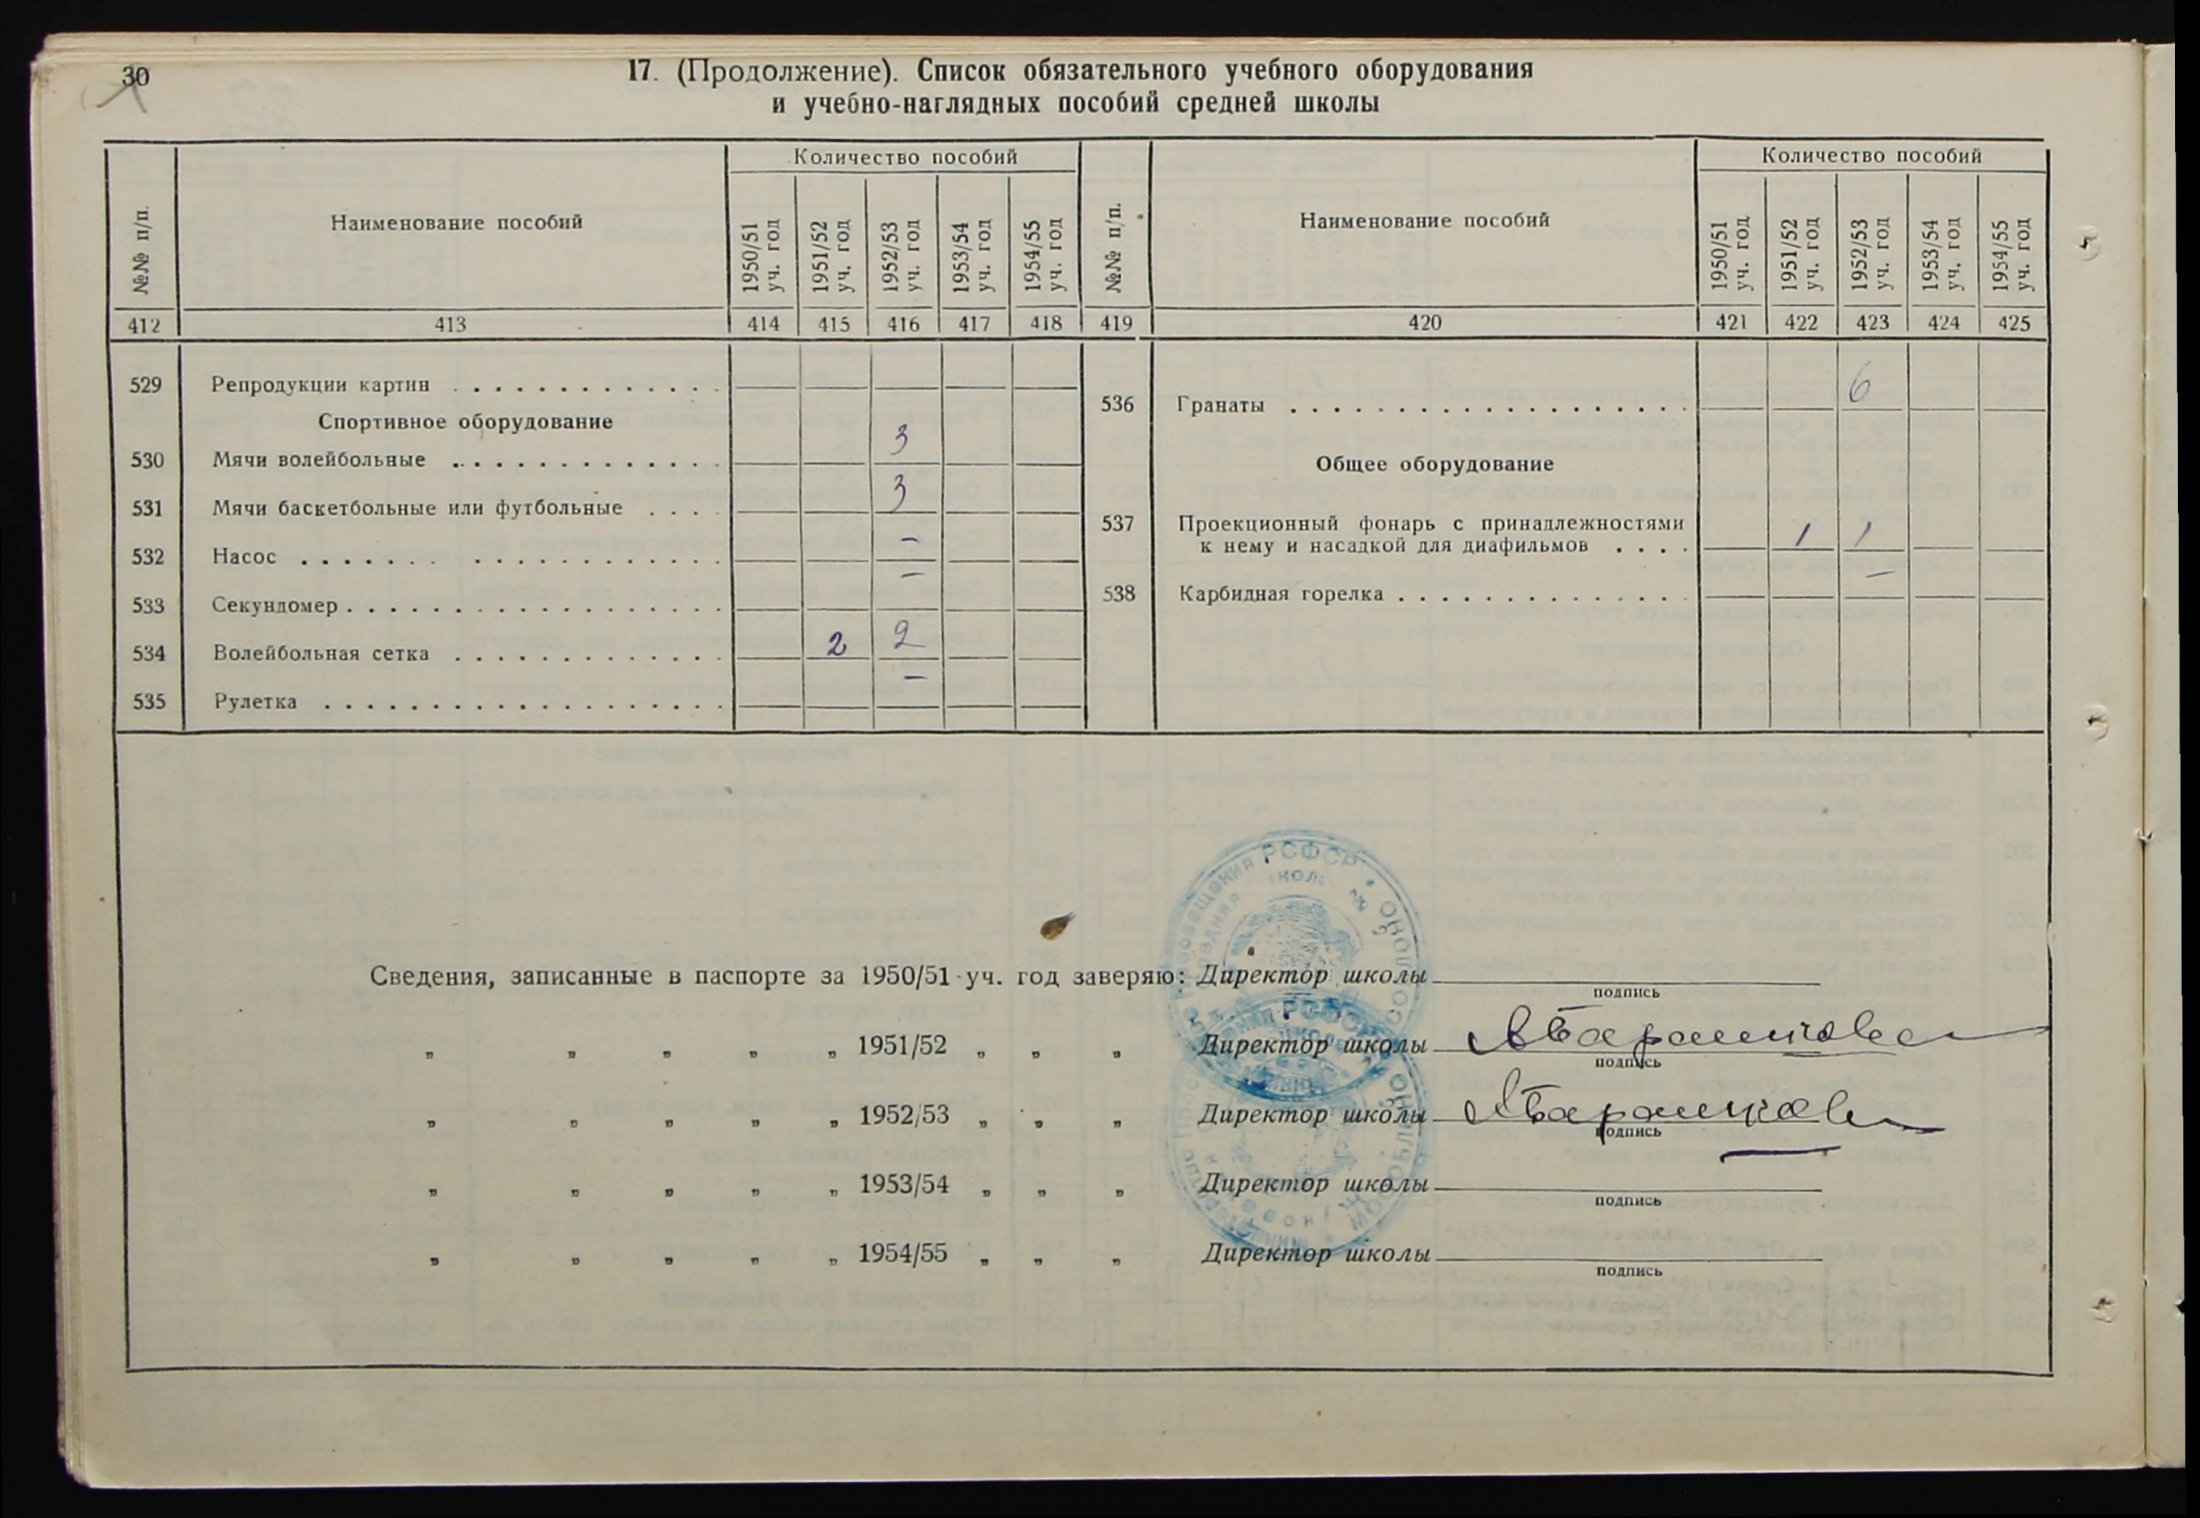 30
17. (Продолжение). Список обязательного учебного оборудования
и учебно-наглядных пособий средней школы
№№ п/п.
Наименование пособий
Количество пособий
1950/51 уч. год
1951/52 уч. год
1952/53 уч. год
1953/54 уч. год
1954/55 уч. год
№№ п/п.
Наименование пособий
Количество пособий
1950/51 уч. год
1951/52 уч. год
1952/53 уч. год
1953/54 уч. год
1954/55 уч. год
412 413 414 415 416 417 418 419 420 421 422 423 424 425
529 Репродукции картин
Спортивное оборудование
530 Мячи волейбольные 3
531 Мячи баскетбольные или футбольные 3
532 Насос –
533 Секундомер –
534 Волейбольная сетка 2 2
535 Рулетка –
536 Гранаты 6
Общее оборудование
537 Проекционный фонарь с принадлежностями
к нему и насадкой для диафильмов 1 1
538 Карбидная горелка –
Сведения, записанные в паспорте за 1950/51 уч. год заверяю: Директор школы
подпись
„ „ „ „ „ 1951/52 „ „ „ Директор школы
подпись
„ „ „ „ „ 1952/53 „ „ „ Директор школы
подпись
„ „ „ „ „ 1953/54 „ „ „ Директор школы
подпись
„ „ „ „ „ 1954/55 „ „ „ Директор школы
подпись
РСФСР